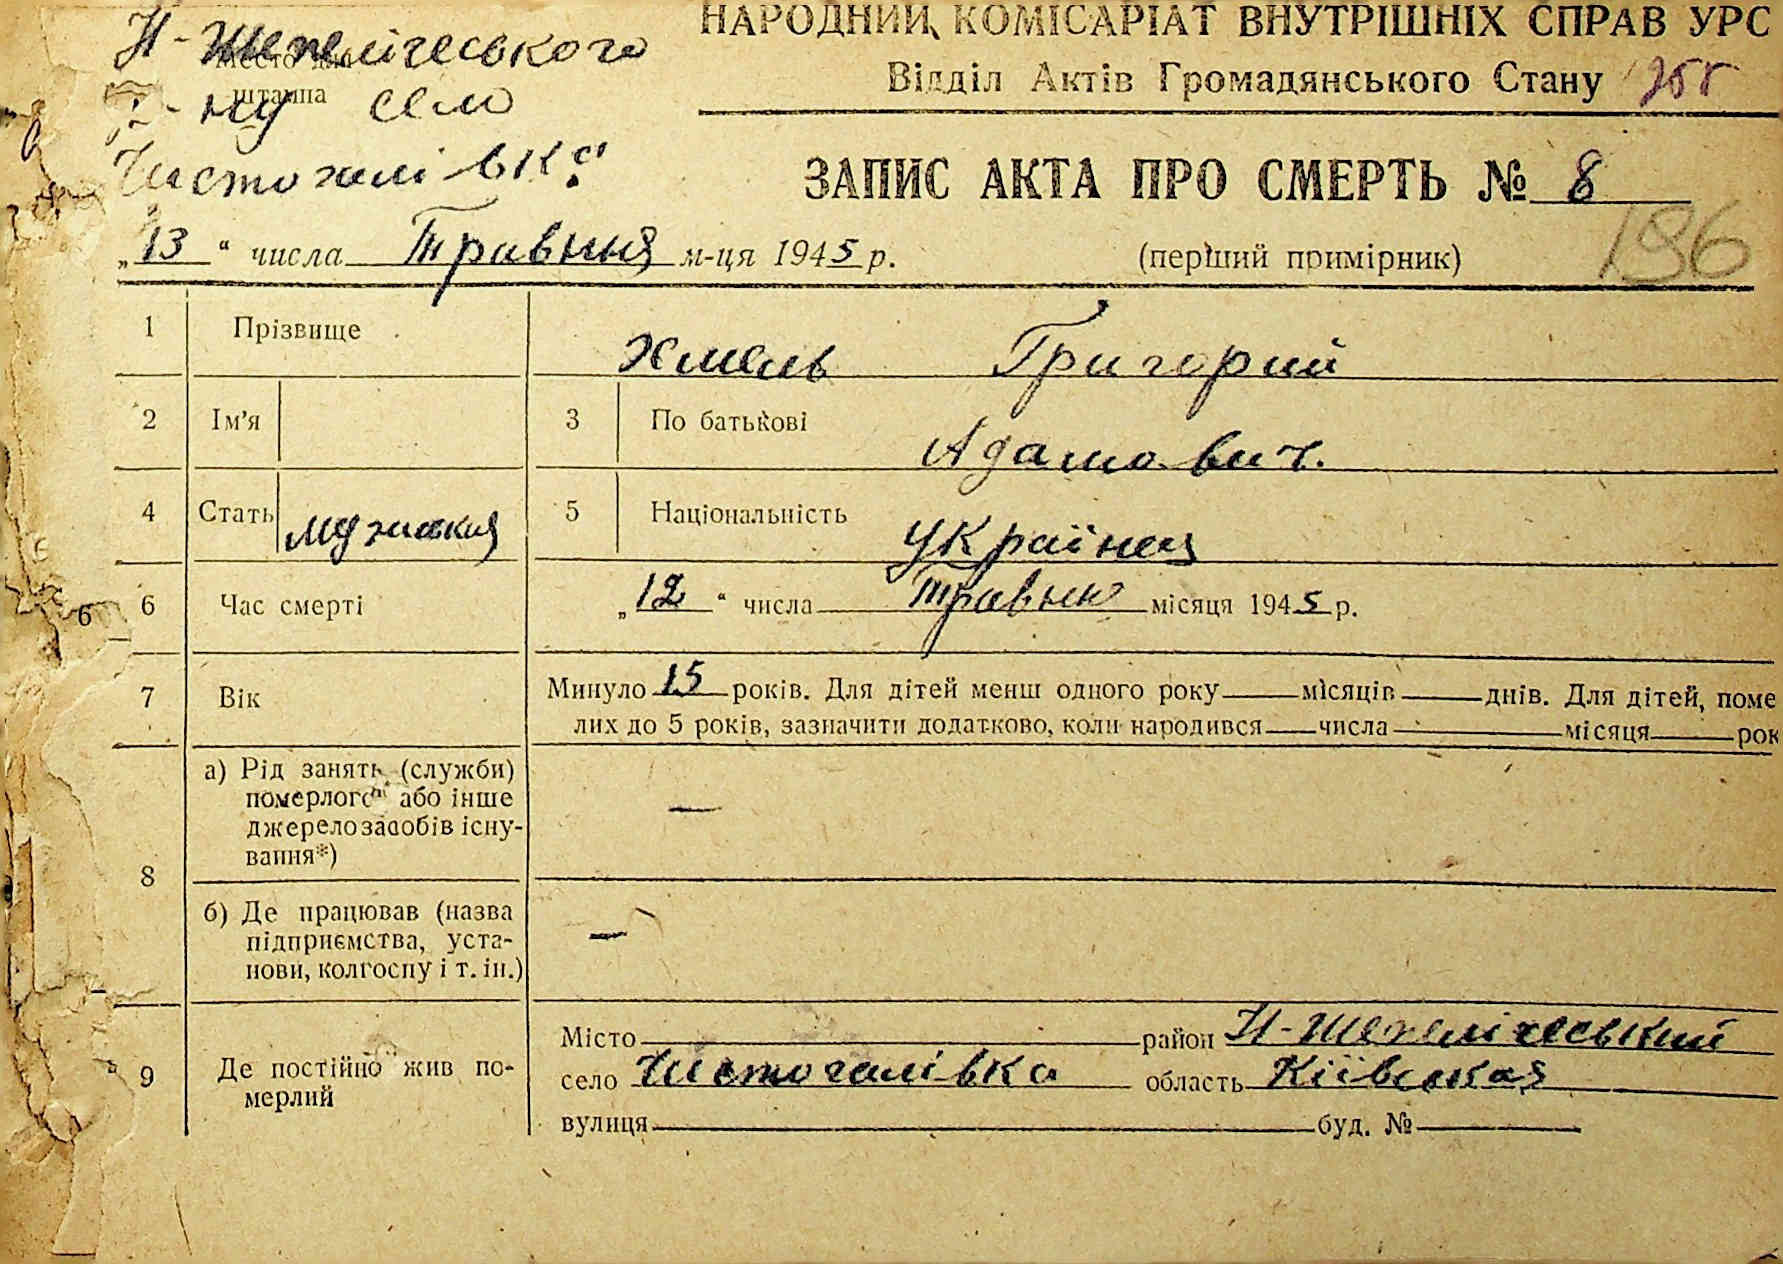 НАРОДНИЙ КОМІСАРІАТ ВНУТРІШНІХ СПРАВ УРС
Відділ Актів Громадянського Стану
Н-Шепелічеського
Место для
штампа
р-ну село
Чистогалівка
ЗАПИС АКТА ПРО СМЕРТЬ № 8
„13“ числа Травня м-ця 1945 р. (перший примірник) 196
1 Прізвище Хмель Григорий
2 Ім’я 3 По батькові Адамович.
4 Стать мужская 5 Національність Українец
6 6 Час смерті „12“ числа Травню місяця 1945 р.
7 Вік Минуло 15 років. Для дітей менш одного року — місяців — днів. Для дітей, поме
лих до 5 років, зазначити додатково, коли народився — числа — місяця — рок
8 а) Рід занять (служби)
померлого або інше
джерело засобів існу-
вання*) —
б) Де працював (назва
підприємства, уста-
нови, колгоспу і т. ін.) —
9 Де постійно жив по-
мерлий
Місто район Н-Шепелічеський
село Чистогалівка область Кіївская
вулиця буд. №